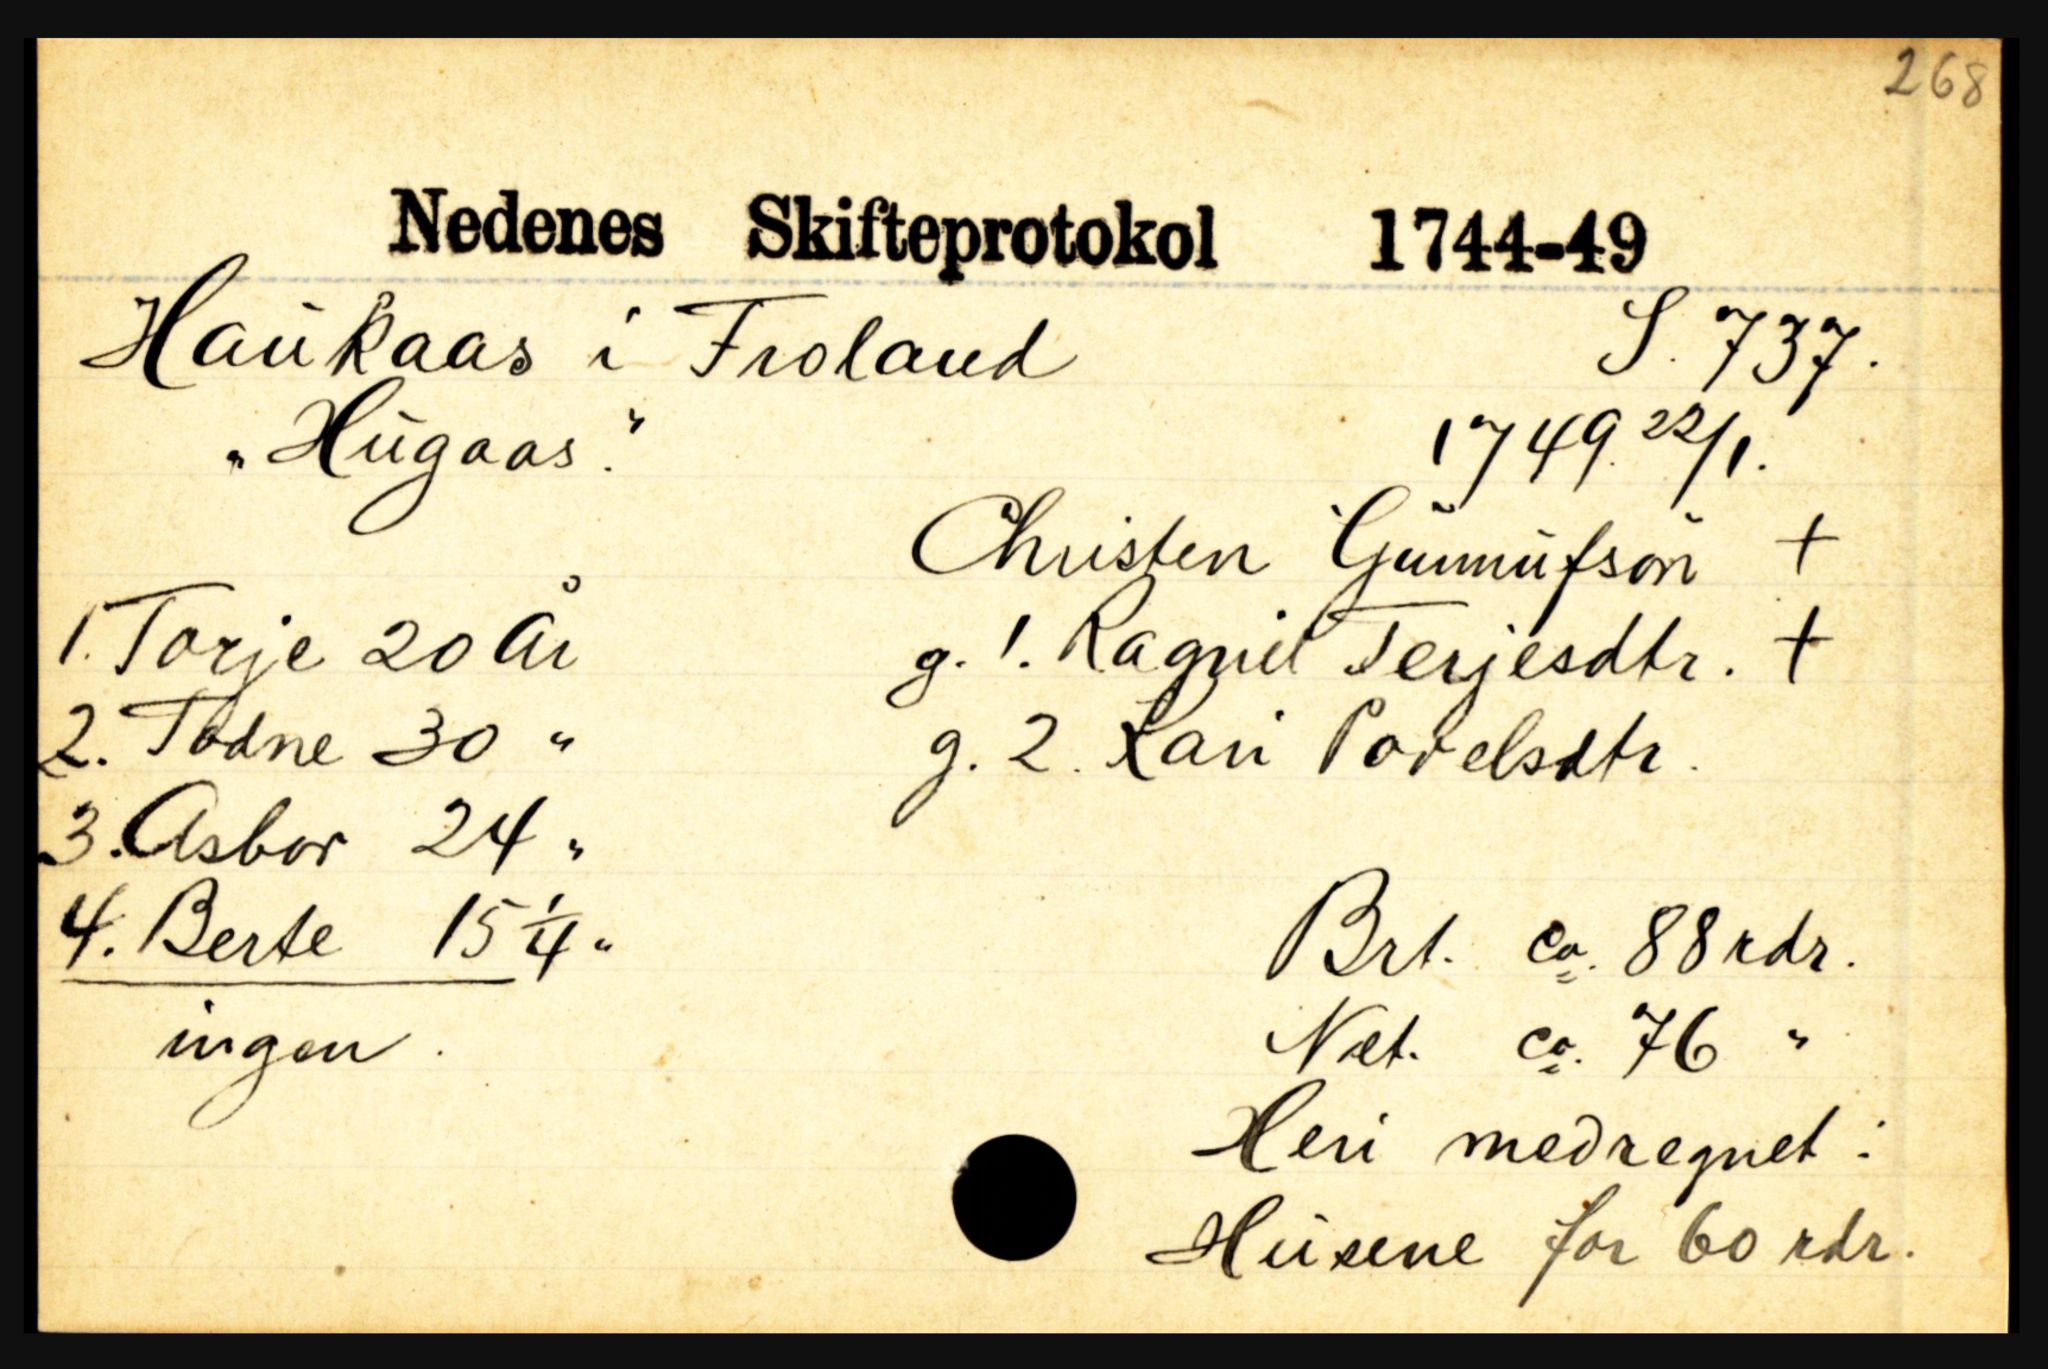 268
Nedenes Skifteprotokol 1744-49
Haukaas i Froland S. 737.
„Hugaas." 1749. 22/1.
Christen Gunnufsøn +
g. 1. Ragnil Terjesdtr. +
g. 2. Kari Povelsdtr.
1. Torje 20 År
2. Todne 30 "
3. Asbor 24 "
4. Berte 15 1/4 "
ingen.
Brt. ca. 88 rdr.
Net. ca. 76 "
Heri medregnet:
Husene for 60 rdr.